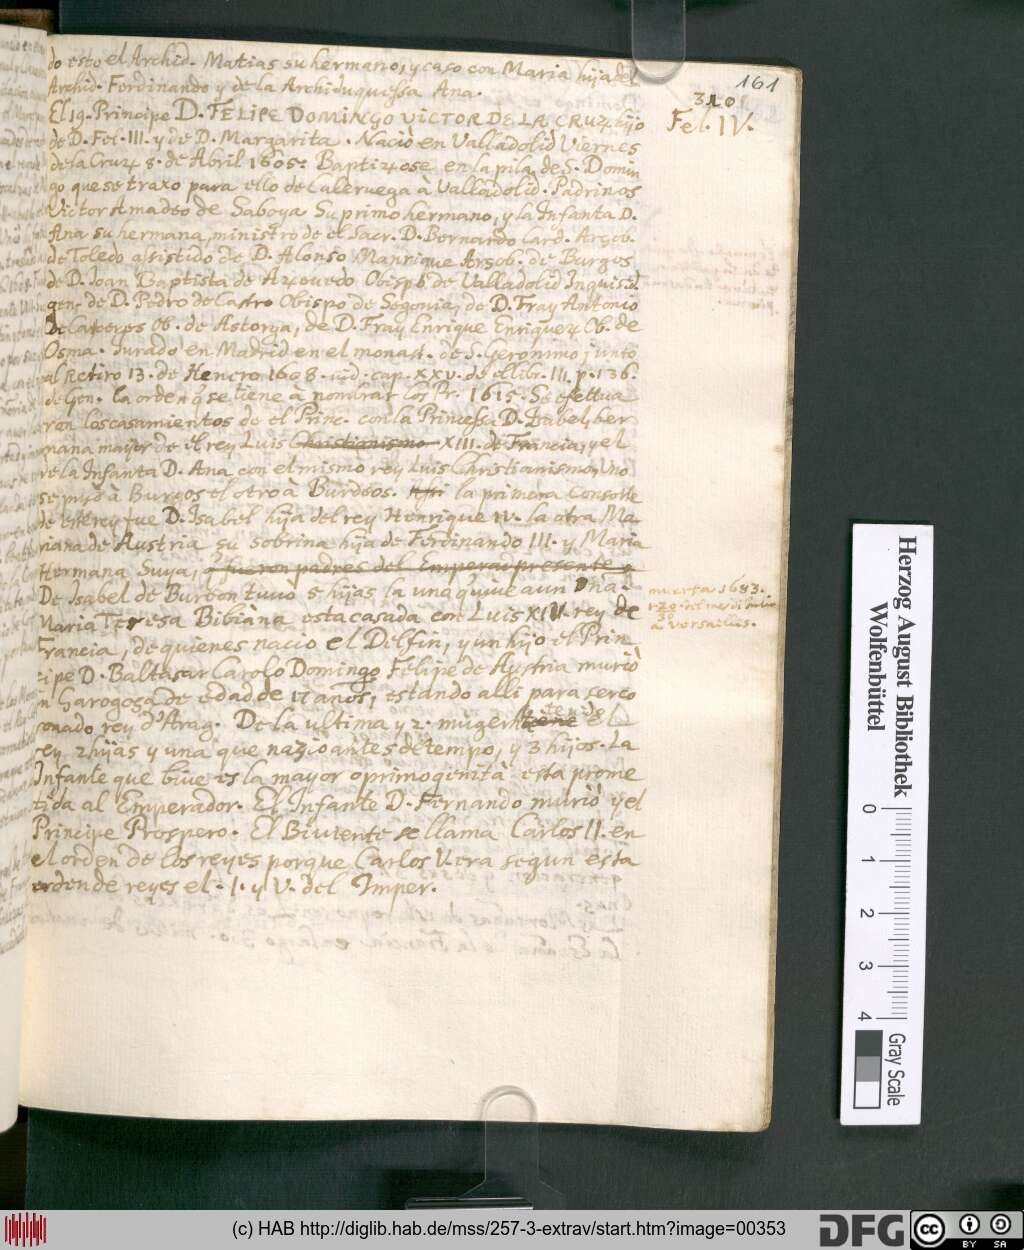 161
310
Fel. IV.
do esto el Archid. Matias su hermano, y caso con Maria hija del
Archid. Ferdinando y de la Archiduquessa Ana.
El 19. Principe D. FELIPE DOMINGO VICTOR DE LA CRUZ hijo
de D. Fel. III. y de D. Margarita. Naciò en Valladolid Viernes
de la Cruz 8. de Abril 1605. Baptizose en la pila de S. Domin
go que se traxo para ello de Caleruega à Valladolid. Padrinos
Victor Amadeo de Saboya Su primo hermano, y la Infanta D.
Ana su hermana, ministro de el Sacr. D. Bernardo Card. Arçob.
de Toledo assistido de D. Alonso Manrique Arçob. de Burgos,
de D. Ioan Baptista de Azevedo Obispo de Valladolid Inquis.d.
gen. de D. Pedro de Castro Obispo de Segovia, de D. Fray Antonio
de Caseres Ob. de Astorga, de D. Fray Enrique Enriquez Ob. de
Osma. Iurado en Madrid en el monast. de S. Geronimo junto
al Retiro 13. de Henero 1608. vid. cap. XXV. de el libr. III. p. 136.
de Gen. la orden q se tiene à nombrar los Pr. 1615. Se efettua
ron los casamientos de el Princ. con la Princessa D. Isabel, her
mana mayor de el rey Luis Christianismo XIII. de Francia, y el
de la Infanta D. Ana con el mismo rey Luis Christianismo, Uno
se hizo à Burgos el otro à Burdeos. la primera Consorte
de este rey fue D. Isabel hija del rey Henrique IV. la otra Ma
riana de Austria su sobrina hija de Ferdinando III. y Maria
Hermana Suya, q fueron padres del Emperar presente.
De Isabel de Burbon tuvo 5 hijas la una q vive aun Dña.
Maria Teresa Bibiana esta casada con Luis XIV. rey de
Francia, de quienes nacio el Delfin, y un hijo el Prin
cipe D. Baltasar Carolo Domingo Felipe de Austria muriò
n Saragoça de edad de 17 años, estando alli para ser co
ronado rey d'Arag. De la ultima y 2. muger tiene el
rey 2 hijas y una que nazio antes de tempo, y 3 hijos. La
Infante que bive es la mayor o primogenità esta prome
tida al Emperador. El Infante D. Fernando muriò y el
Principe Prospero. El Biviente se llama Carlos II. en
el orden de los reyes porque Carlos V. era segun esta
orden de reyes el. I. y V. del Imper.
muerta 1683.
30
à Versailles.
Herzog August Bibliothek
Wolfenbüttel
0
1
2
3
4
Gray Scale
(c) HAB http://diglib.hab.de/mss/257-3-extrav/start.htm?image=00353
DFG
cc
BY SA